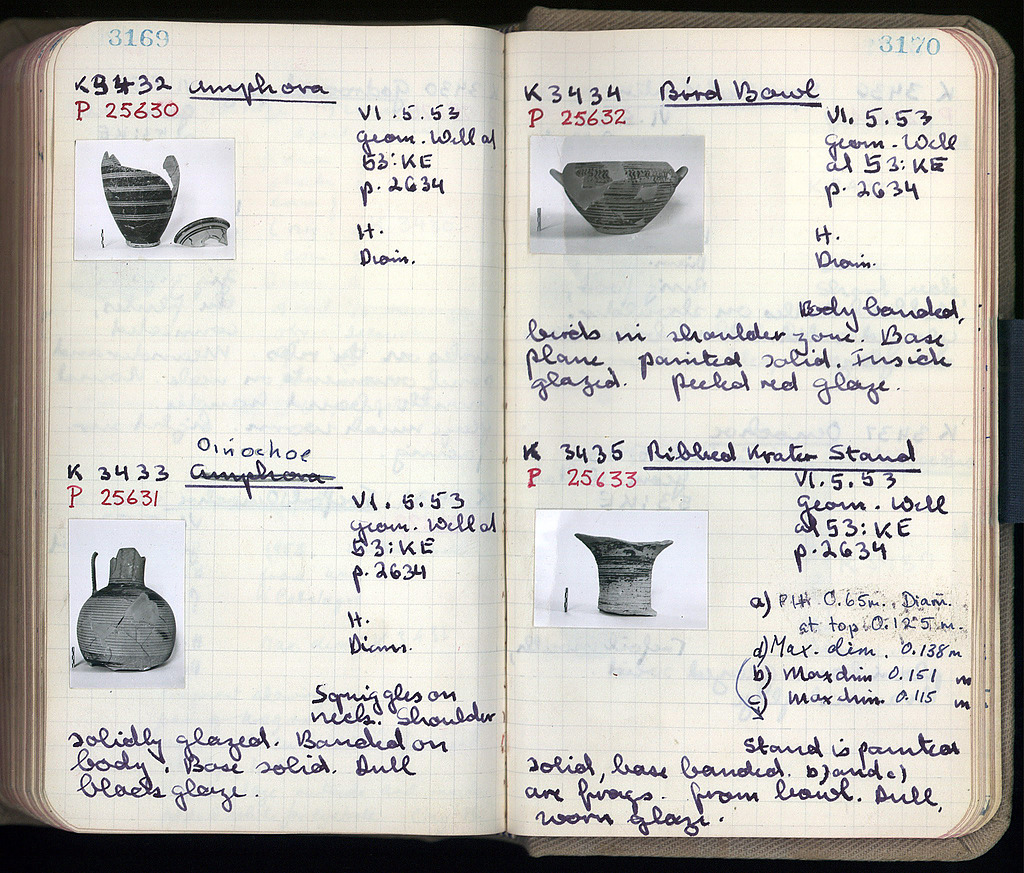 3169
K 3432 Amphora
P 25630
VI.5.53
Geom. Well at
53:KE
p. 2634
H.
Diam.
Oinochoe
K 3433 Amphora
P 25631
VI.5.53
Geom. Well at
53:KE
p. 2634
H.
Diam.
Squiggles on
neck. Shoulder
solidly glazed. Banded on
body. Base solid. Dull
black glaze.
3170
K 3434 Bird Bowl
P 25632
VI.5.53
Geom. Well
at 53:KE
p. 2634
H.
Diam.
Body banded,
birds in shoulder zone. Base
plane painted solid. Inside
glazed. Peeled red glaze.
K 3435 Ribbed Krater Stand
P 25633
VI.5.53
Geom. Well
at 53:KE
p. 2634
a) P.H. 0.65m. Diam.
at top 0.125 m.
d) Max. dim. 0.138 m
b) Max dim 0.151 m
c) max dim. 0.115 m
Stand is painted
solid, base banded. b) and c)
are frags. from bowl. Dull,
worn glaze.